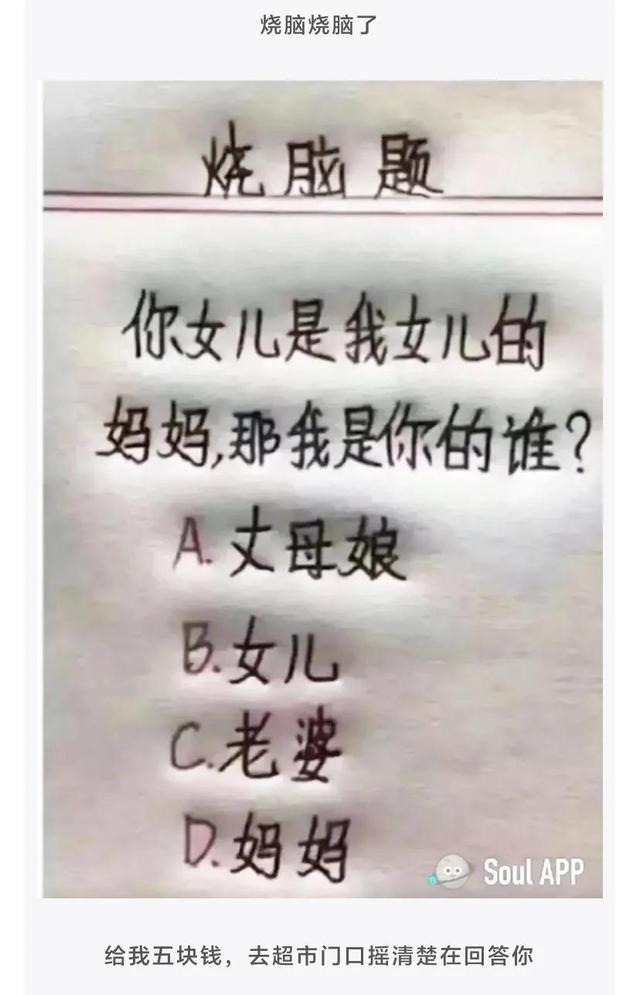 烧脑烧脑了
烧脑题
你女儿是我女儿的
妈妈,那我是你的谁?
A.丈母娘
B.女儿
C.老婆
D.妈妈
Soul APP
给我五块钱，去超市门口摇清楚在回答你